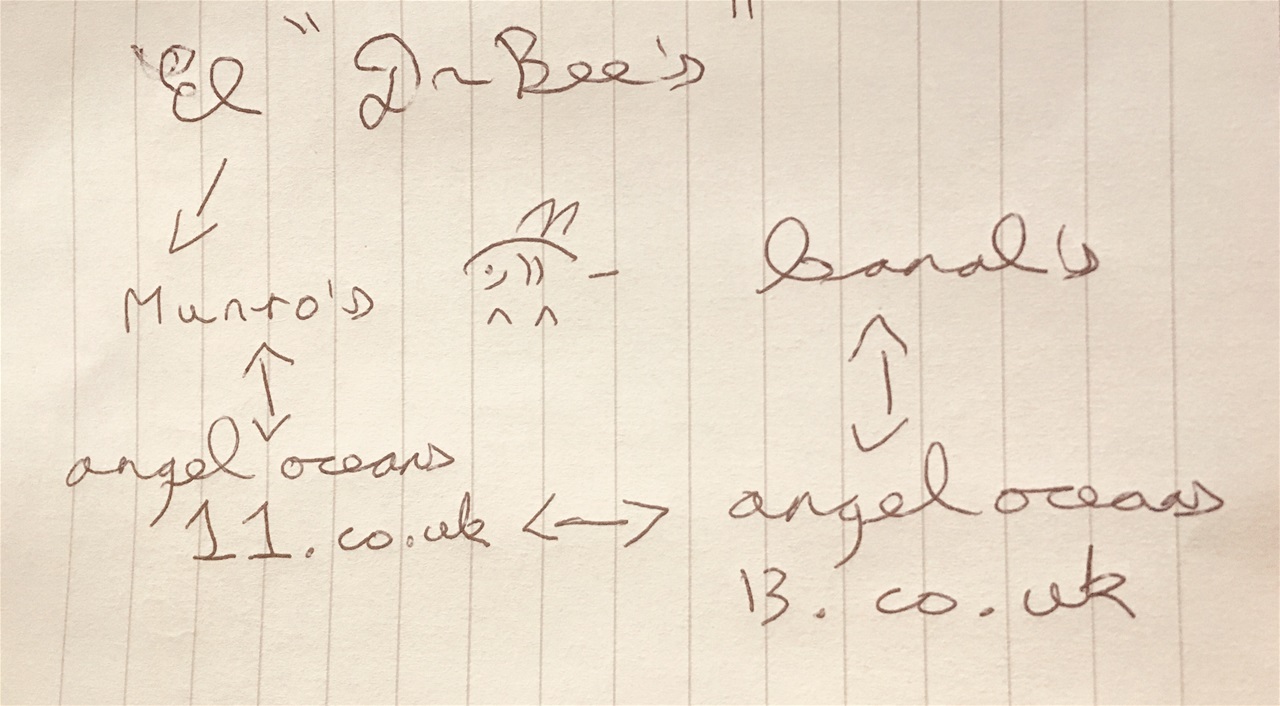 'El " Dr Bee's "
Munro's
banal's
angel oceans
11.co.uk
angel oceans
13.co.uk